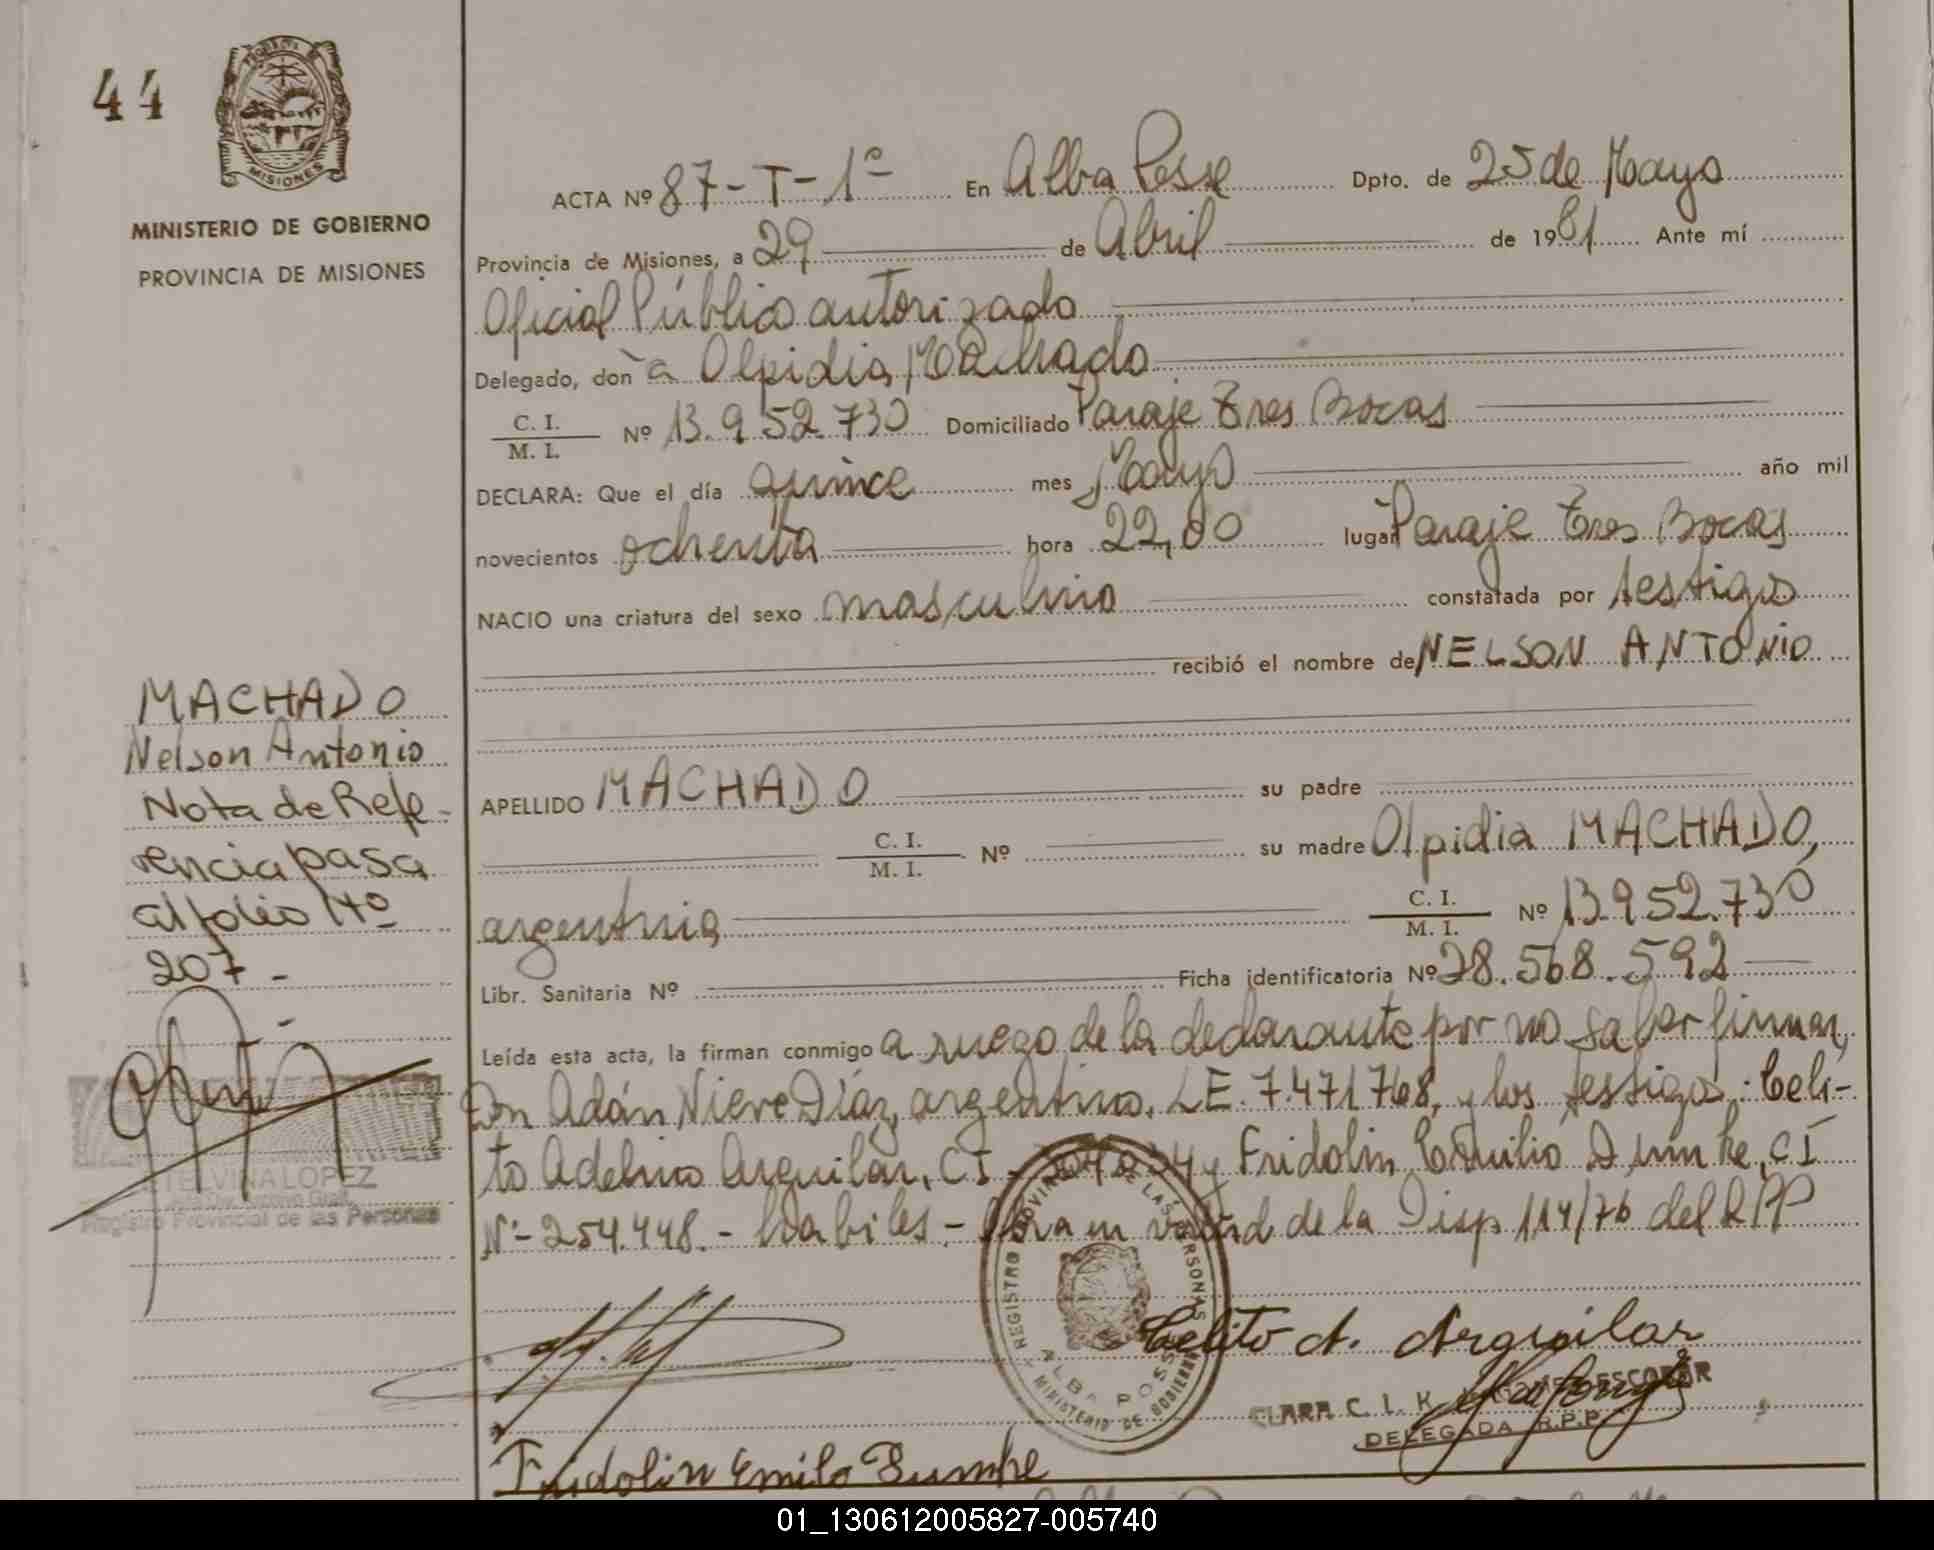 44
PROVINCIA
MISIONES
MINISTERIO DE GOBIERNO
PROVINCIA DE MISIONES
ACTA Nº 87-T-1º En Alba Posse Dpto. de 25 de Mayo
Provincia de Misiones, a 29 de Abril de 1981 Ante mí
Oficial Público autorizado
Delegado, don a Olpidia Machado
C. I.
M. I.
Nº 13.952.730 Domiciliado Paraje Tres Bocas
DECLARA: Que el día quince mes Mayo año mil
novecientos ochenta hora 22,00 lugar Paraje Tres Bocas
NACIO una criatura del sexo masculino constatada por testigos
recibió el nombre de NELSON ANTONIO
APELLIDO MACHADO su padre
C. I.
M. I.
Nº su madre Olpidia MACHADO,
argentina C. I.
M. I.
Nº 13.952.730
Libr. Sanitaria Nº Ficha identificatoria Nº 28.568.592
Leída esta acta, la firman conmigo a ruego de la declarante por no saber firmar,
Don Adán Nieve Díaz, argentino, LE. 7.471768, y los testigos: Celi-
to Adelino Arguilar, CI y Fridolin Emilio Dumke, CI
Nº 254.448.- Habiles.- en de la Disp. 114/76 del RPP
MACHADO
Nelson Antonio
Nota de Refe-
rencia pasa
al folio Nº
207-
ETELVINA LOPEZ
Registro Provincial de las Personas
REGISTRO PROVINCIAL DE LAS PERSONAS
ALBA POSSE
MINISTERIO DE GOBIERNO
Celito A. Arguilar
CLARA C. I. K. ESCOBAR
DELEGADA R.P.P.
Fridolin Emilo Dumke
01_130612005827-005740